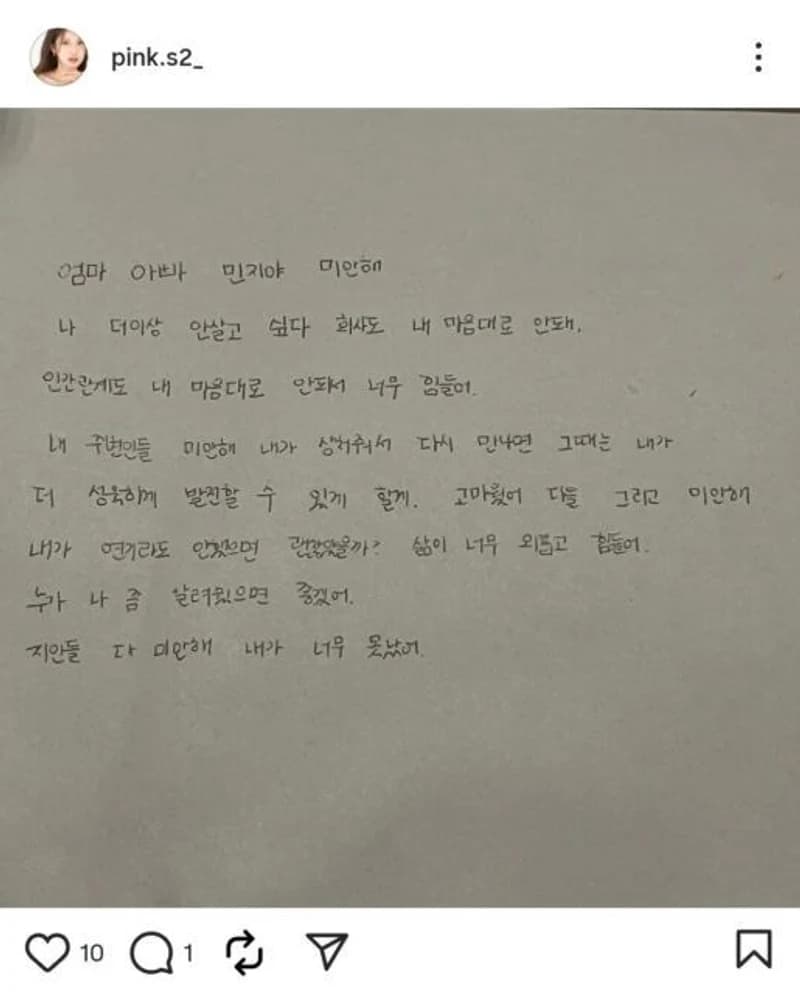 pink.s2_
엄마 아빠 민지야 미안해
나 더이상 안살고 싶다 회사도 내 마음대로 안돼.
인간관계도 내 마음대로 안돠서 너무 힘들어.
내 주변인들 미안해 내가 상처줘서 다시 만나면 그때는 내가
더 성욱하게 발전할 수 있게 할게. 고마웠어 다들 그리고 미안해
내가 연기라도 안했으면 괜찮았을까? 삶이 너무 외롭고 힘들어.
누가 나 좀 살려줬으면 좋겠어.
지인들 다 미안해 내가 너무 못났어.
10
1